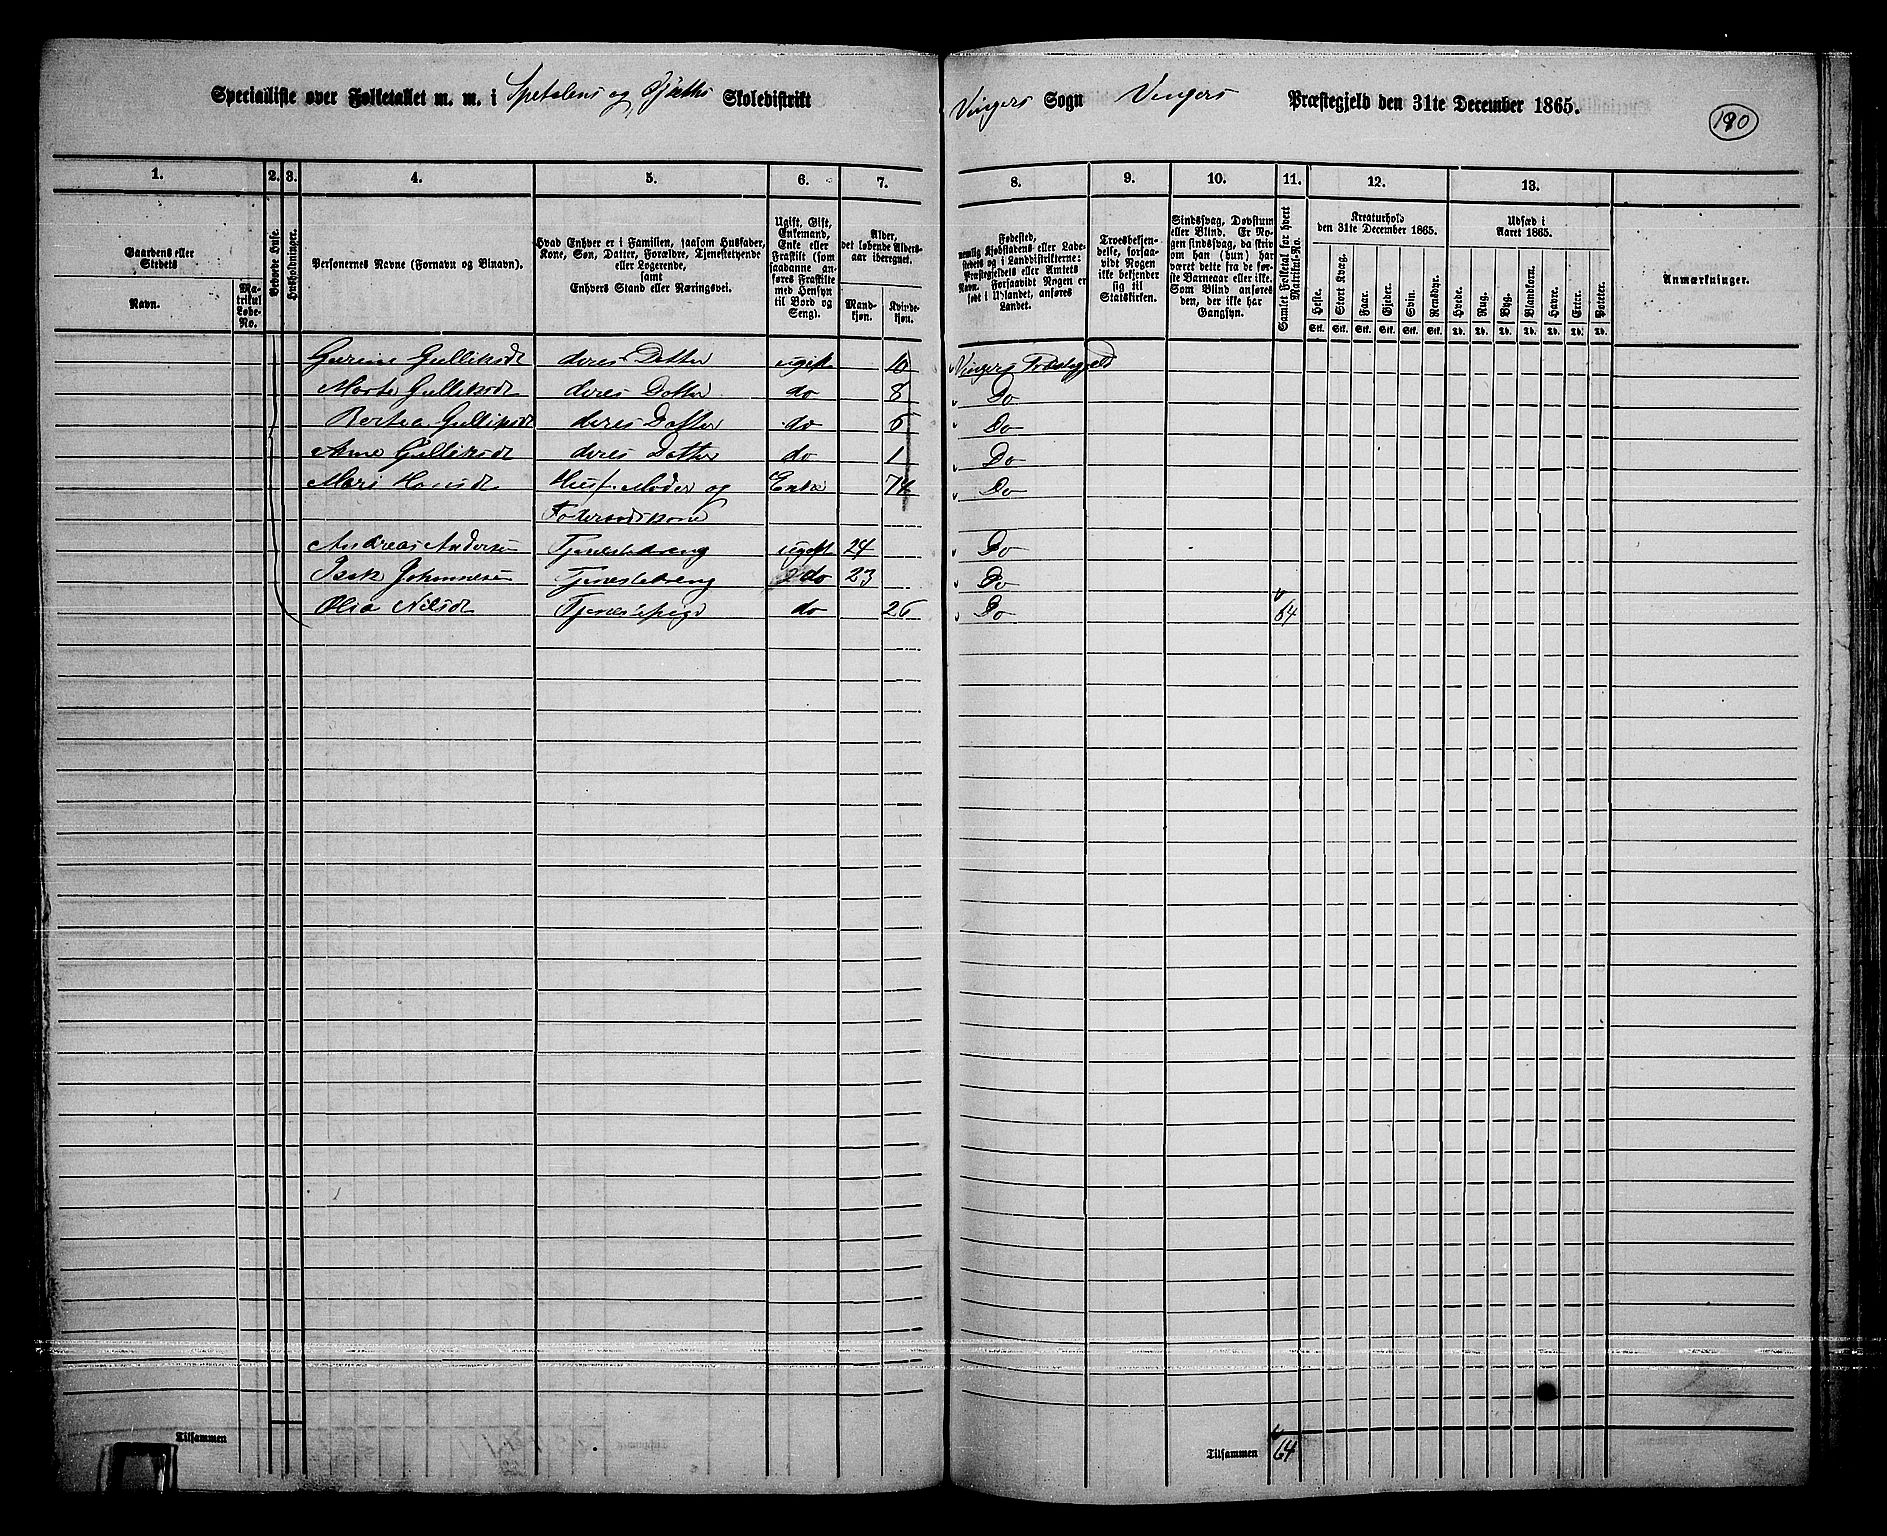 Specialliste over Folketallet m. m. i Spetalens og Skoledistrikt
Vingers Sogn Vingers Præstegjeld den 31te December 1865.
190
1. 2. 3. 4. 5. 6. 7. 8. 9. 10. 11. 12. 13.
Gaardens eller Stedets
Navn.
Matrikul Løbe-No.
Beboede Huse.
Husholdninger.
Personernes Navne (Fornavn og Binavn).
Hvad Enhver er i Familien, saasom Husfader, Kone, Søn, Datter, Forældre, Tjenestetyende eller Logerende,
samt
Enhvers Stand eller Næringsvei.
Ugift, Gift, Enkemand, Enke eller Fraskilt (som saadanne anføres Fraskilte med Hensyn til Bord og Seng).
Alder, det løbende Alders-aar iberegnet.
Mand-kjøn.
Kvinde-kjøn.
Fødested,
nemlig Kjøbstadens eller Ladestedets og i Landdistrikterne: Præstegjeldets eller Amtets Navn. Forsaavidt Nogen er født i Udlandet, anføres Landet.
Troesbekjendelse, forsaavidt Nogen ikke bekjender sig til Statskirken.
Sindssvag, Døvstum eller Blind. Er Nogen sindssvag, da skriv om han (hun) har været dette fra de første Barneaar eller ikke. Som Blind anføres den, der ikke har Gangsyn.
Samlet Folketal for hvert Matrikul-No.
Kreaturhold
den 31te December 1865.
Heste. Stort Kvæg. Faar. Gjeder. Svin. Rensdyr.
Stk. Stk. Stk. Stk. Stk. Stk.
Udsæd i
Aaret 1865.
Hvede. Rug. Byg. Blandkorn. Havre. Erter. Poteter.
Td. Td. Td. Td. Td. Td. Td.
Anmærkninger.
Gulliksdt deres Datter ugift 10 Vingers Præstegjeld
Marte Gulliksdt deres Datter do 8 Do
Bertea Gulliksdt deres Datter do 5 Do
Ane Gulliksdt deres Datter do 1 Do
Mari Hansdt Husf. Moder og Enke 74 Do
Foderaadskone
Andreas Andersen Tjenestedreng ugift 24 Do
Isak Johannesen Tjenestedreng do 23 Do
Olia Nilsdt Tjenestepige do 25 Do 64
Tilsammen
Tilsammen 64